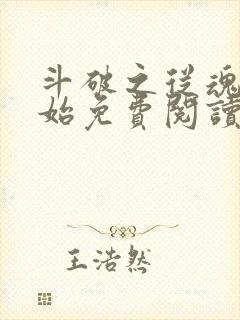 斗破之從魂
始免費閱讀
王浩然